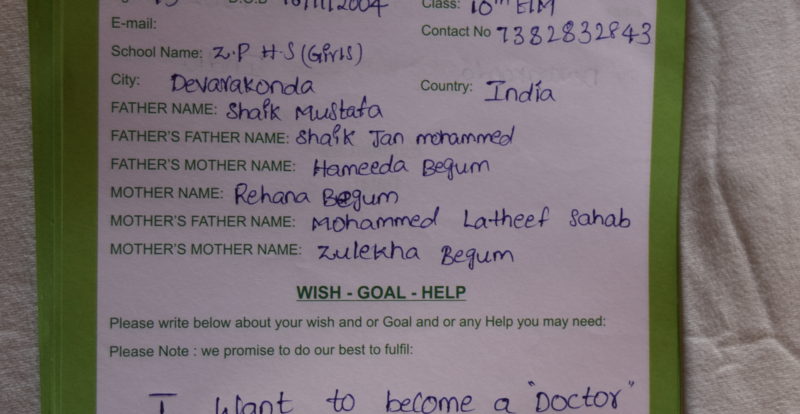 10/11/2004 Class: 10th E/M
E-mail: Contact No 7382832843
School Name: Z.P H.S (Girls)
City: Devarakonda Country: India
FATHER NAME: Shaik Mustafa
FATHER'S FATHER NAME: Shaik Jan mohammed
FATHER'S MOTHER NAME: Hameeda Begum
MOTHER NAME: Rehana Begum
MOTHER'S FATHER NAME: Mohammed Latheef Sahab
MOTHER'S MOTHER NAME: Zulekha Begum
WISH - GOAL - HELP
Please write below about your wish and or Goal and or any Help you may need:
Please Note : we promise to do our best to fulfil:
I want to become a "Doctor"